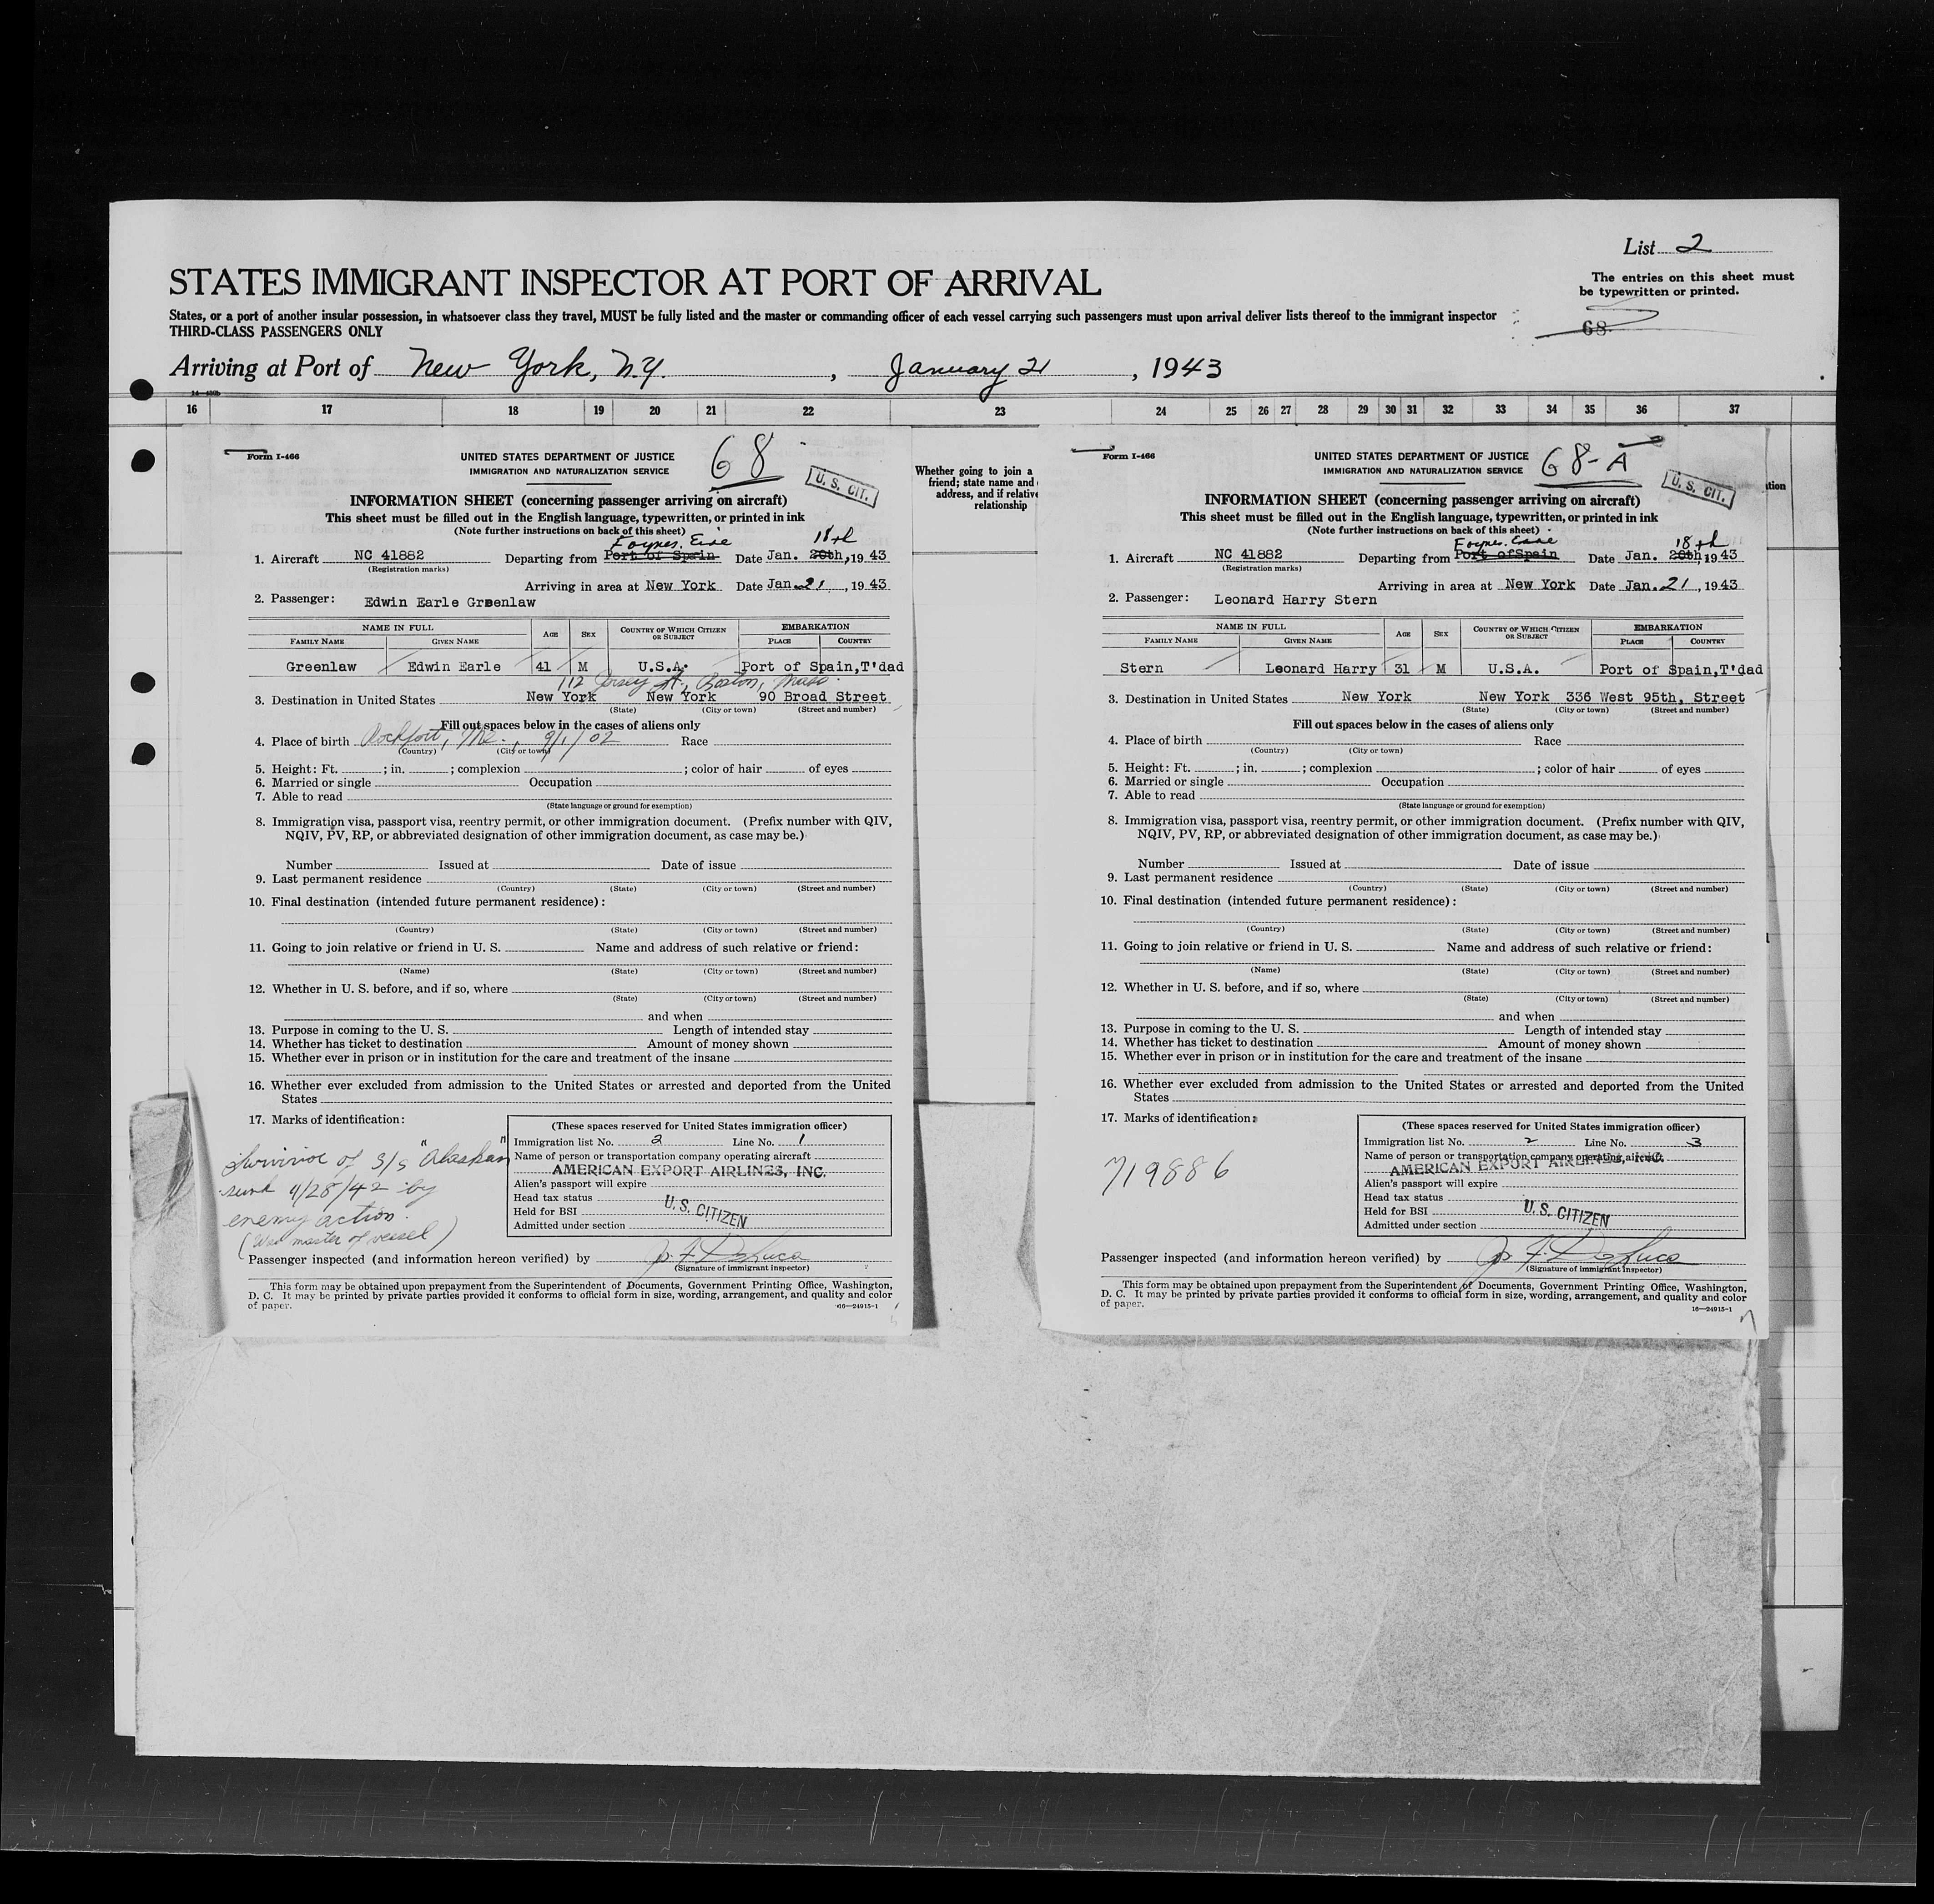 List 2
STATES IMMIGRANT INSPECTOR AT PORT OF ARRIVAL
The entries on this sheet must
be typewritten or printed.
States, or a port of another insular possession, in whatsoever class they travel, MUST be fully listed and the master or commanding officer of each vessel carrying such passengers must upon arrival deliver lists thereof to the immigrant inspector
THIRD-CLASS PASSENGERS ONLY
68
Arriving at Port of New York, N.Y. , January 21 , 1943
16 17 18 19 20 21 22 23 24 25 26 27 28 29 30 31 32 33 34 35 36 37
Form I-466
UNITED STATES DEPARTMENT OF JUSTICE
IMMIGRATION AND NATURALIZATION SERVICE
68
U. S. CIT.
INFORMATION SHEET (concerning passenger arriving on aircraft)
This sheet must be filled out in the English language, typewritten, or printed in ink
(Note further instructions on back of this sheet)
Foynes, Eire 18th
1. Aircraft NC 41882 Departing from Port of Spain Date Jan. 20th, 1943
(Registration marks)
Arriving in area at New York Date Jan. 21, 1943
2. Passenger: Edwin Earle Greenlaw
NAME IN FULL AGE SEX COUNTRY OF WHICH CITIZEN OR SUBJECT EMBARKATION
FAMILY NAME GIVEN NAME PLACE COUNTRY
Greenlaw Edwin Earle 41 M U.S.A. Port of Spain,T'dad
112 Jersey St., Boston, Mass.
3. Destination in United States New York New York 90 Broad Street
(State) (City or town) (Street and number)
Fill out spaces below in the cases of aliens only
4. Place of birth Rockport, Me., 9/1/02 Race
(Country) (City or town)
5. Height: Ft. ; in. ; complexion ; color of hair of eyes
6. Married or single Occupation
7. Able to read
(State language or ground for exemption)
8. Immigration visa, passport visa, reentry permit, or other immigration document. (Prefix number with QIV,
NQIV, PV, RP, or abbreviated designation of other immigration document, as case may be.)
Number Issued at Date of issue
9. Last permanent residence
(Country) (State) (City or town) (Street and number)
10. Final destination (intended future permanent residence):
(Country) (State) (City or town) (Street and number)
11. Going to join relative or friend in U. S. Name and address of such relative or friend:
(Name) (State) (City or town) (Street and number)
12. Whether in U. S. before, and if so, where
(State) (City or town) (Street and number)
and when
13. Purpose in coming to the U. S. Length of intended stay
14. Whether has ticket to destination Amount of money shown
15. Whether ever in prison or in institution for the care and treatment of the insane
16. Whether ever excluded from admission to the United States or arrested and deported from the United
States
17. Marks of identification:
Survivor of S/S "Alaskan"
sunk 11/28/42 by
enemy action.
(Was master of vessel)
(These spaces reserved for United States immigration officer)
Immigration list No. 2 Line No. 1
Name of person or transportation company operating aircraft
AMERICAN EXPORT AIRLINES, INC.
Alien's passport will expire
Head tax status
Held for BSI U. S. CITIZEN
Admitted under section
Passenger inspected (and information hereon verified) by Jos. F. DeLuca
(Signature of immigrant inspector)
This form may be obtained upon prepayment from the Superintendent of Documents, Government Printing Office, Washington,
D. C. It may be printed by private parties provided it conforms to official form in size, wording, arrangement, and quality and color
of paper.
16—24915-1
Whether going to join a
friend; state name and
address, and if relative
relationship
Form I-466
UNITED STATES DEPARTMENT OF JUSTICE
IMMIGRATION AND NATURALIZATION SERVICE
68-A
U. S. CIT.
INFORMATION SHEET (concerning passenger arriving on aircraft)
This sheet must be filled out in the English language, typewritten, or printed in ink
(Note further instructions on back of this sheet)
Foynes, Eire 18th
1. Aircraft NC 41882 Departing from Port of Spain Date Jan. 20th, 1943
(Registration marks)
Arriving in area at New York Date Jan. 21, 1943
2. Passenger: Leonard Harry Stern
NAME IN FULL AGE SEX COUNTRY OF WHICH CITIZEN OR SUBJECT EMBARKATION
FAMILY NAME GIVEN NAME PLACE COUNTRY
Stern Leonard Harry 31 M U.S.A. Port of Spain,T'dad
3. Destination in United States New York New York 336 West 95th, Street
(State) (City or town) (Street and number)
Fill out spaces below in the cases of aliens only
4. Place of birth Race
(Country) (City or town)
5. Height: Ft. ; in. ; complexion ; color of hair of eyes
6. Married or single Occupation
7. Able to read
(State language or ground for exemption)
8. Immigration visa, passport visa, reentry permit, or other immigration document. (Prefix number with QIV,
NQIV, PV, RP, or abbreviated designation of other immigration document, as case may be.)
Number Issued at Date of issue
9. Last permanent residence
(Country) (State) (City or town) (Street and number)
10. Final destination (intended future permanent residence):
(Country) (State) (City or town) (Street and number)
11. Going to join relative or friend in U. S. Name and address of such relative or friend:
(Name) (State) (City or town) (Street and number)
12. Whether in U. S. before, and if so, where
(State) (City or town) (Street and number)
and when
13. Purpose in coming to the U. S. Length of intended stay
14. Whether has ticket to destination Amount of money shown
15. Whether ever in prison or in institution for the care and treatment of the insane
16. Whether ever excluded from admission to the United States or arrested and deported from the United
States
17. Marks of identification:
719886
(These spaces reserved for United States immigration officer)
Immigration list No. 2 Line No. 3
Name of person or transportation company operating aircraft
AMERICAN EXPORT AIRLINES, INC.
Alien's passport will expire
Head tax status
Held for BSI U. S. CITIZEN
Admitted under section
Passenger inspected (and information hereon verified) by Jos. F. DeLuca
(Signature of immigrant inspector)
This form may be obtained upon prepayment from the Superintendent of Documents, Government Printing Office, Washington,
D. C. It may be printed by private parties provided it conforms to official form in size, wording, arrangement, and quality and color
of paper.
16—24915-1